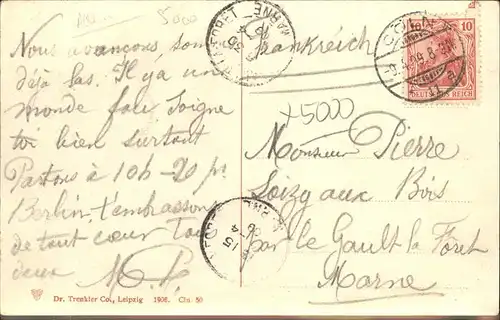 5000
Nous avançons, son
déjà las. Il y a un
monde fou Soigne
toi bien surtout
Partons à 10h-20 pr
Berlin. t'embrassons
de tout cœur tous
deux M.P.
Frankreich
+5000
Monsieur Pierre
Loizy aux Bois
par le Gault la Forêt
Marne
MARNE
CÖLN
10
DEUTSCHES REICH
15
4
Dr. Trenkler Co., Leipzig 1906. Cln. 50